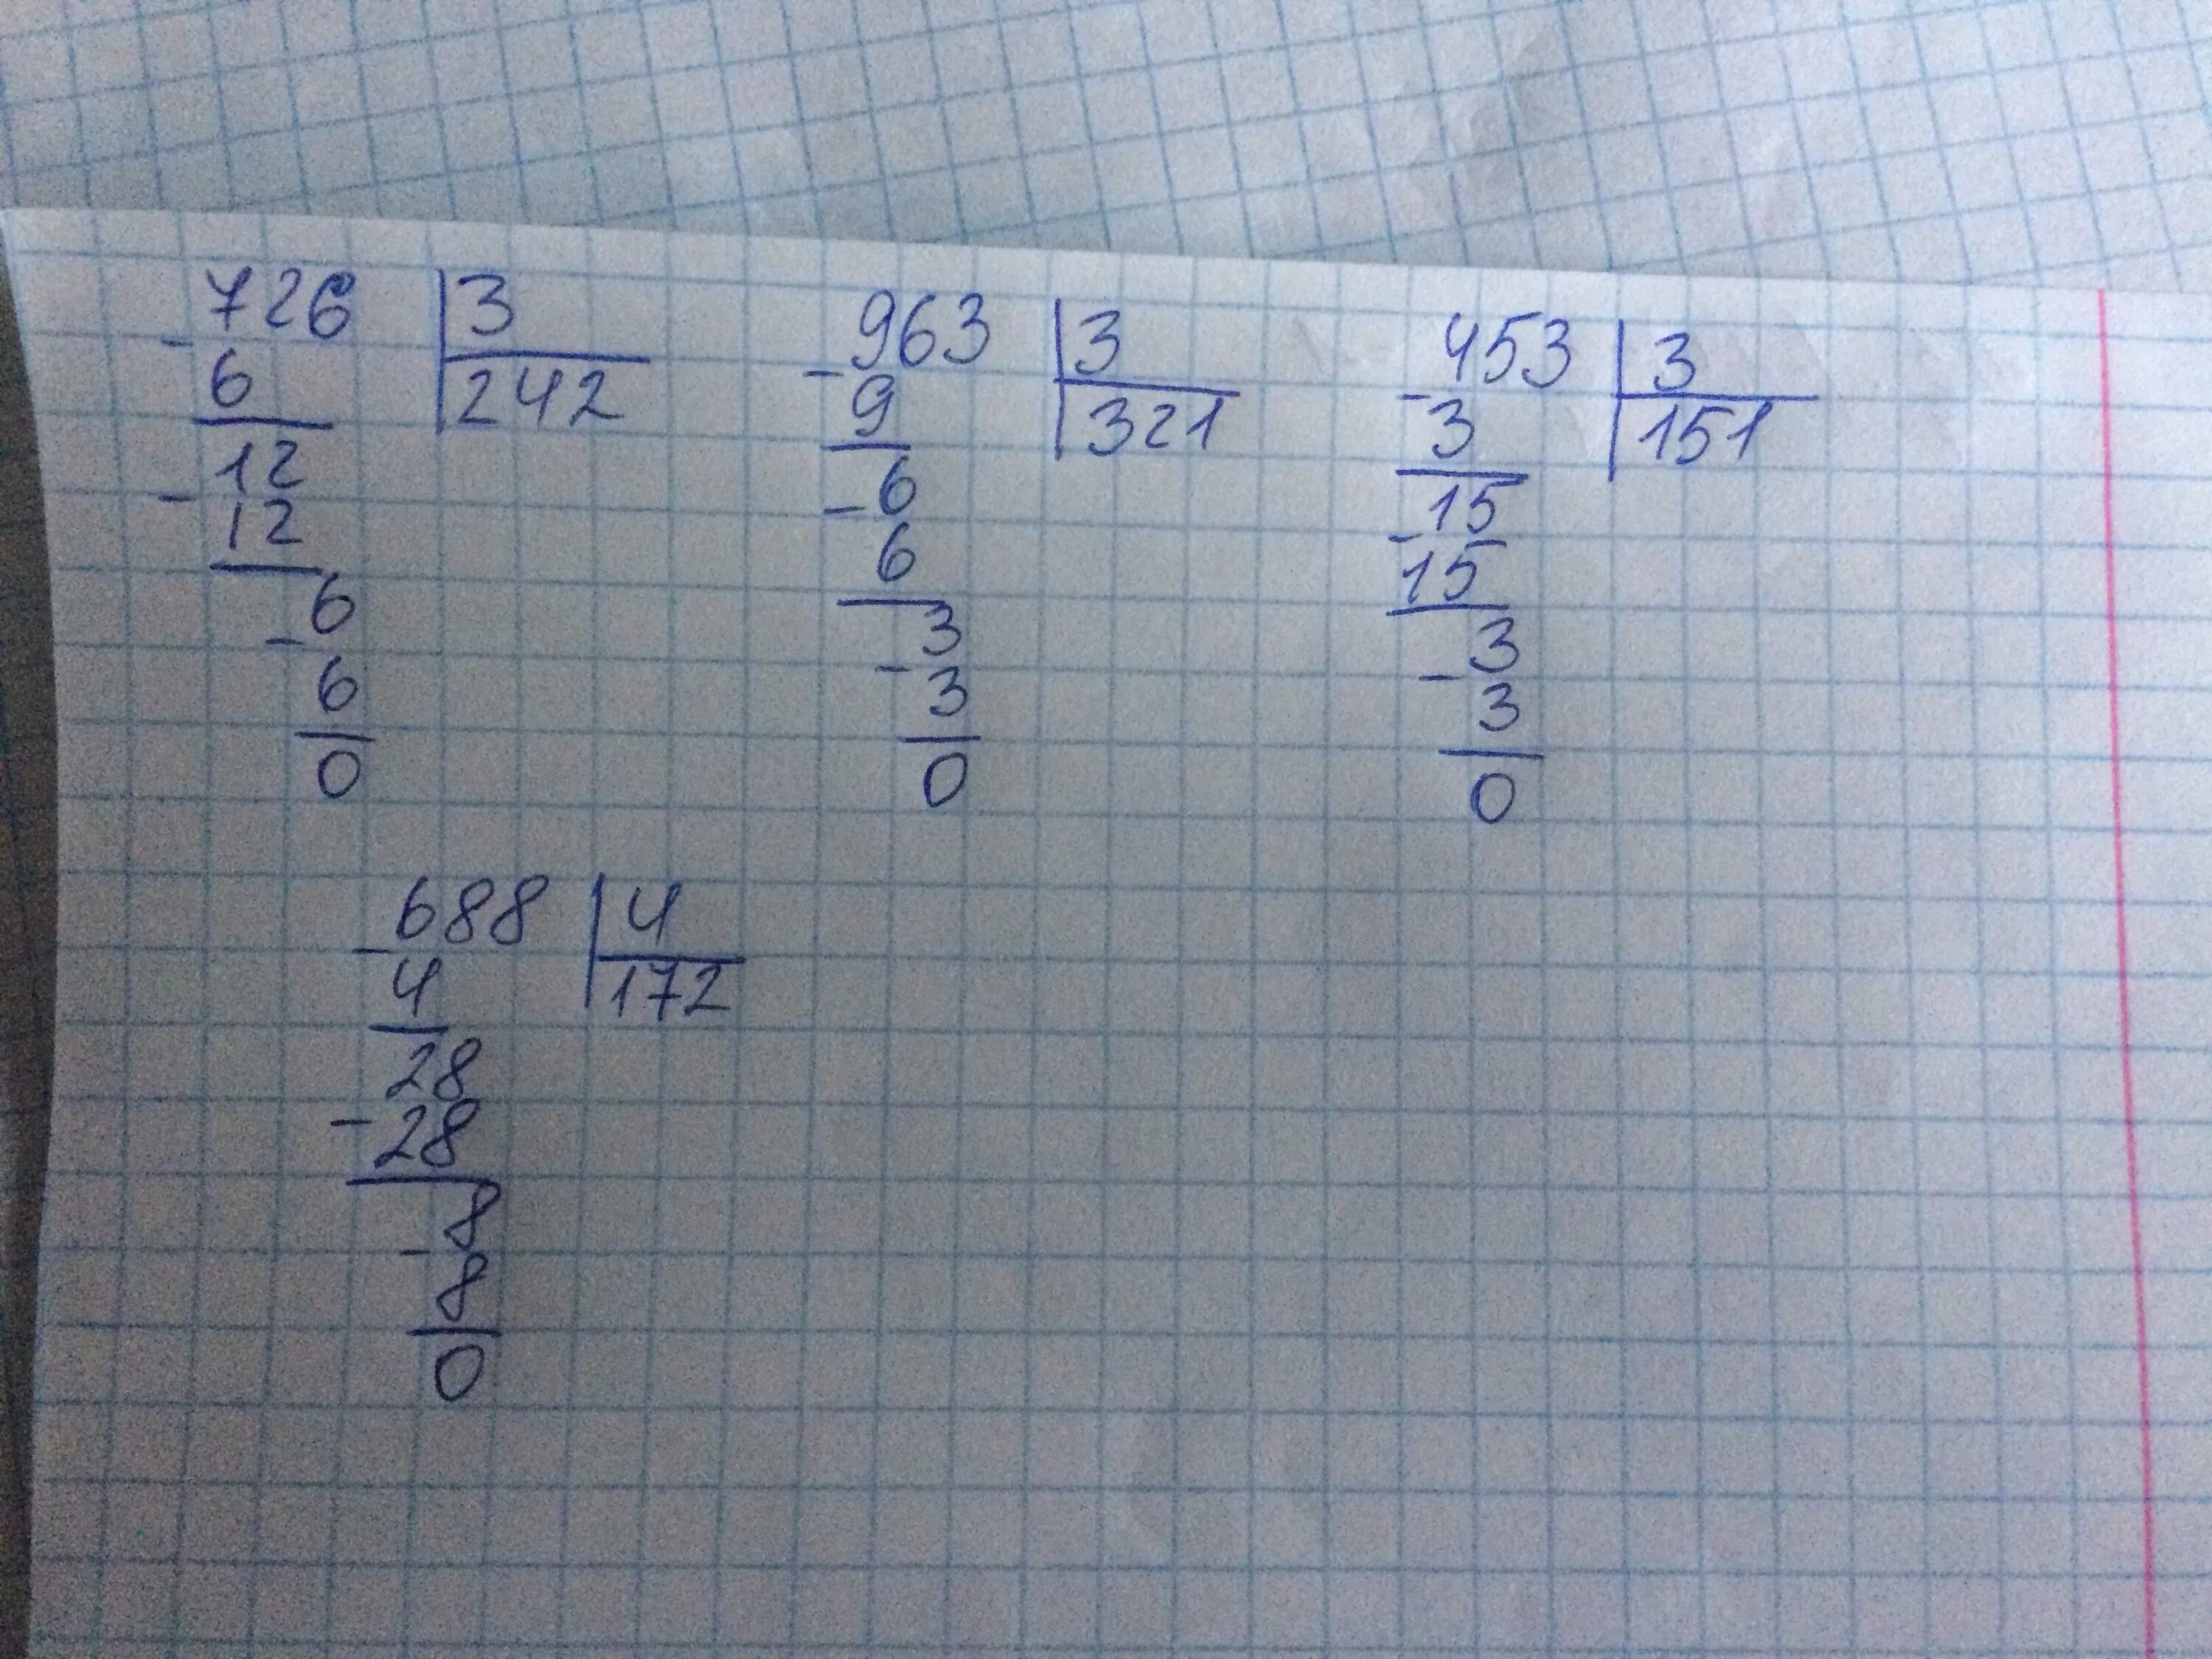 726 3
- 6 242
12
- 12
6
- 6
0
963 3
- 9 321
6
- 6
3
- 3
0
453 3
- 3 151
15
- 15
3
- 3
0
688 4
- 4 172
28
- 28
8
- 8
0